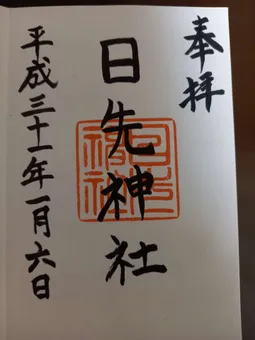 奉拝
日先神社
平成三十一年一月六日